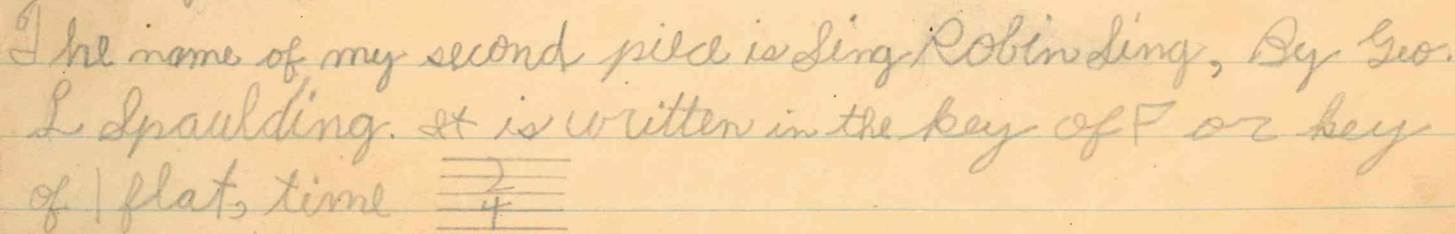 The name of my second piece is Sing Robin Sing, By Geo.
L Spaulding. It is written in the key of F or key
of 1 flat, time 2/4